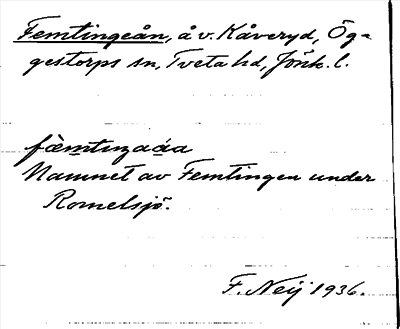 Femtingeån, å v. Kåveryd, Ög-
gestorps sn, Tveta hd, Jönk. l.
fæ̀mtıŋaáa
Namnet av Femtingen under
Romelsjö.
F. Neij 1936.